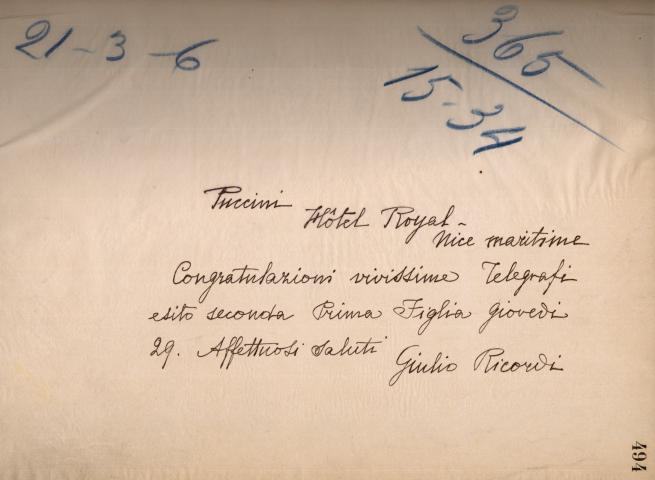 21-3-6
365
15-34
Puccini
Hôtel Royal-
Nice maritime
Congratulazioni vivissime Telegrafi
esito seconda Prima Figlia giovedi
29. Affettuosi saluti
Giulio Ricordi
494